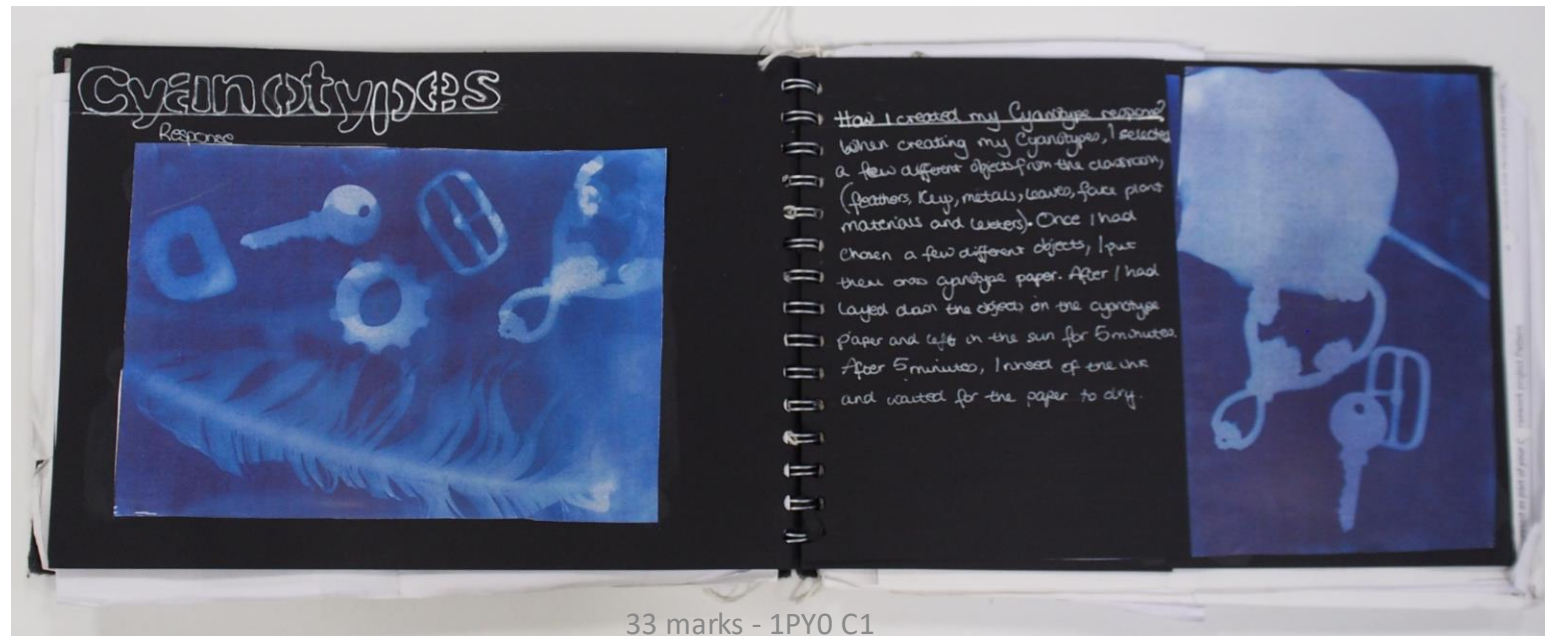 Cyanotypes
Response
How I created my Cyanotype response?
When creating my Cyanotypes, I selected
a few different objects from the classroom,
(feathers, key, metals, leaves, fake plant
materials and letters). Once I had
chosen a few different objects, I put
them onto cyanotype paper. After I had
layed down the objects on the cyanotype
paper and left in the sun for 5 minutes.
After 5 minutes, I rinsed of the ink
and waited for the paper to dry.
33 marks - 1PY0 C1